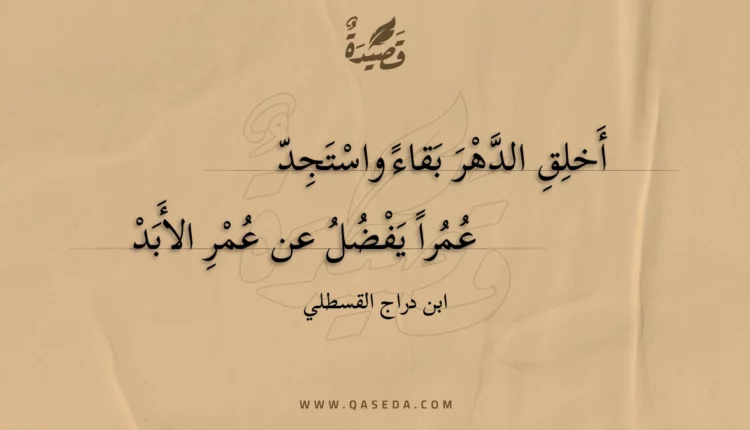 قَصِيْدَةٌ
أَخلِقِ الدَّهْرَ بَقاءً واسْتَجِدّ
عُمُراً يَفْضُلُ عن عُمْرِ الأَبَدْ
ابن دراج القسطلي
WWW.QASEDA.COM